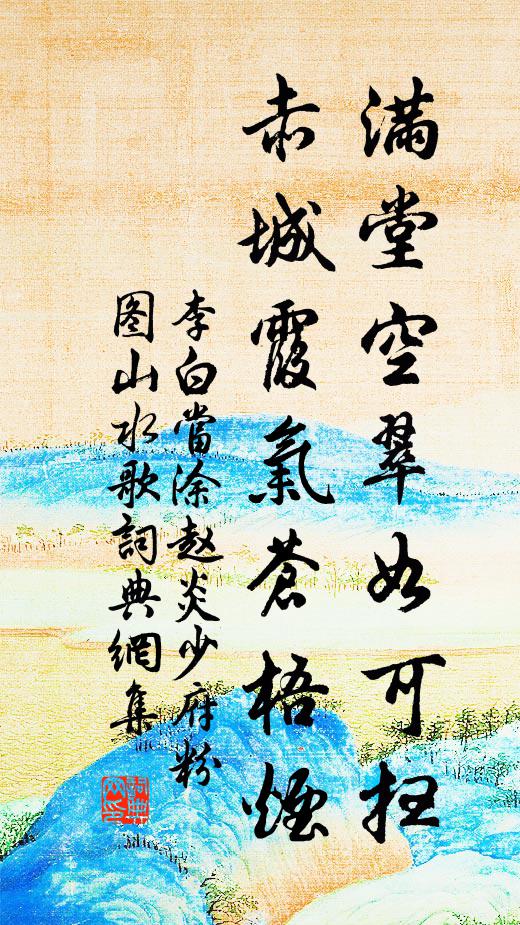 滿堂空翠如可掃
赤城霞氣蒼梧煙
李白當涂趙炎少府粉
图山水歌詞典網集